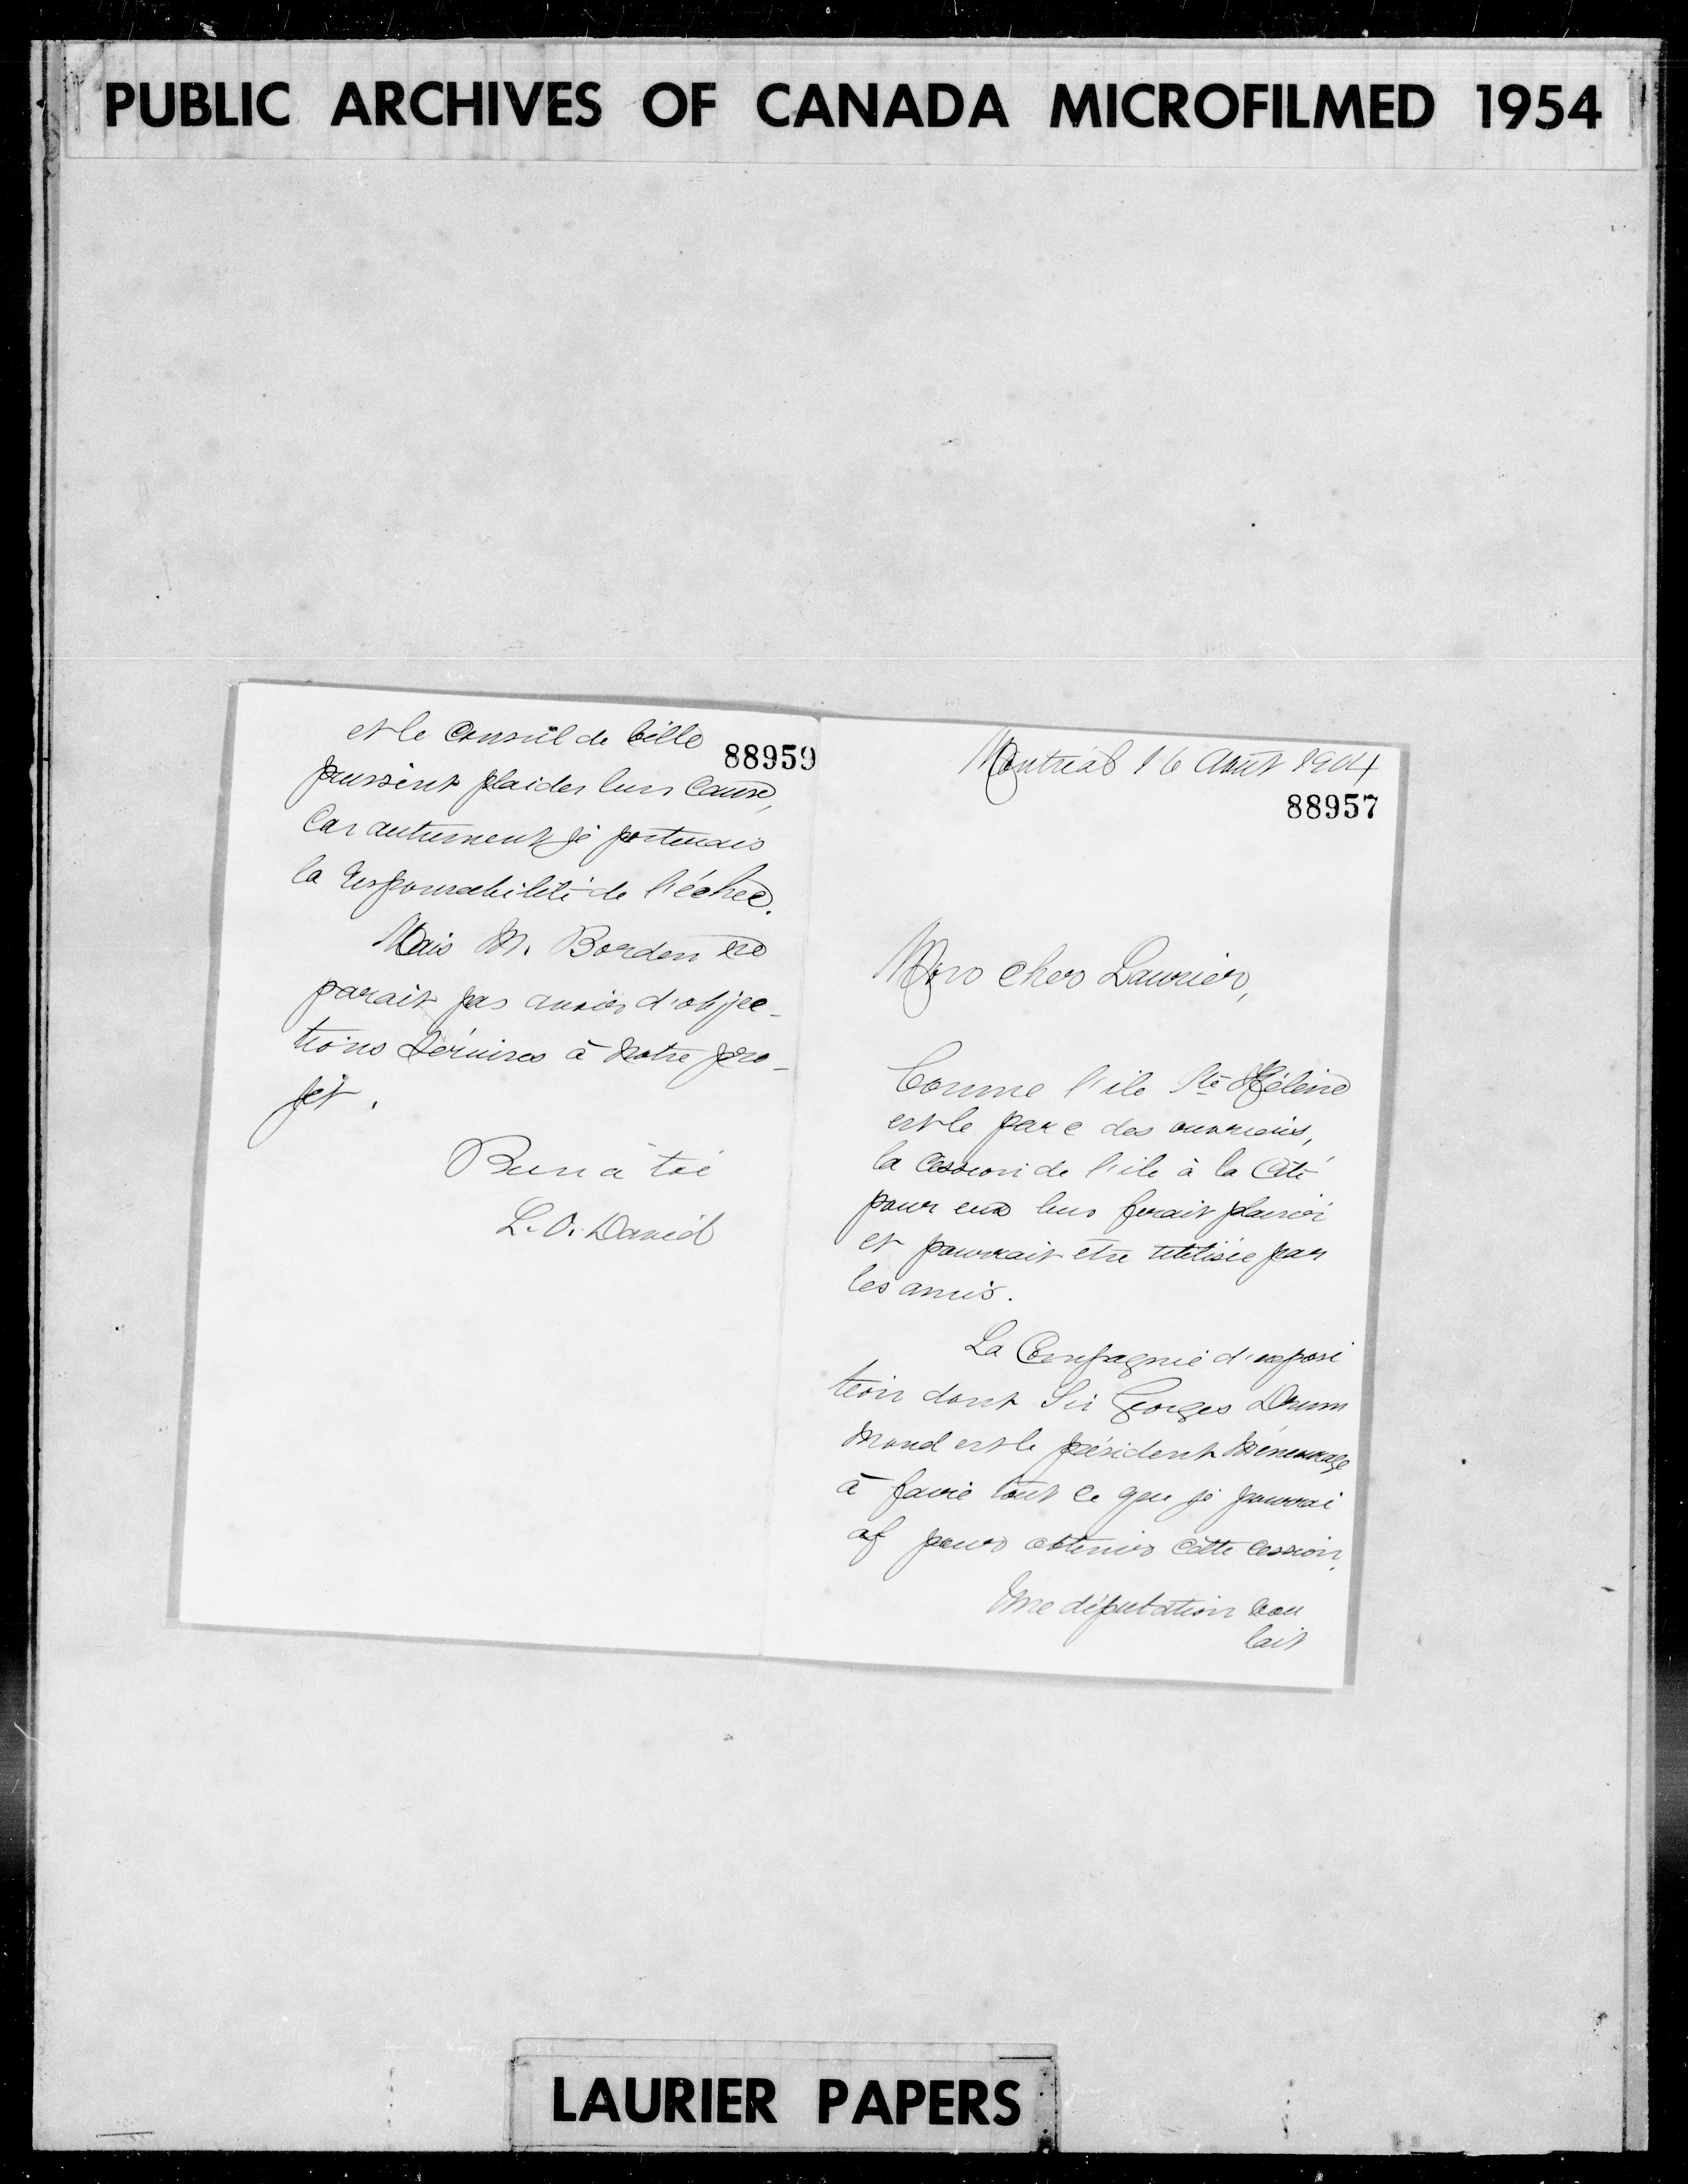 PUBLIC ARCHIVES OF CANADA MICROFILMED 1954
et le Conseil de Ville
88959
pussent plaider leur Cause,
Car autrement je porterais
la responsabilité de l'échec.
Mais M. Borden ne
parait pas avoir d'objec-
tions sérieuses à notre pro-
jet.
Bien à toi
L. O. David
Montréal 16 Août 1904
88957
Mon cher Laurier,
Comme l'ile Ste Hélène
est le parc des ouvriers,
la Cession de l'ile à la Cité
pour eux leur ferait plaisir
et pourrait être utilisée par
les amis.
La Compagnie d'exposi
tion dont Sir Georges Drum
mond est le président m'encourage
à faire tout ce que je pourrai
pour obtenir cette cession.
Une députation vou
lait
LAURIER PAPERS